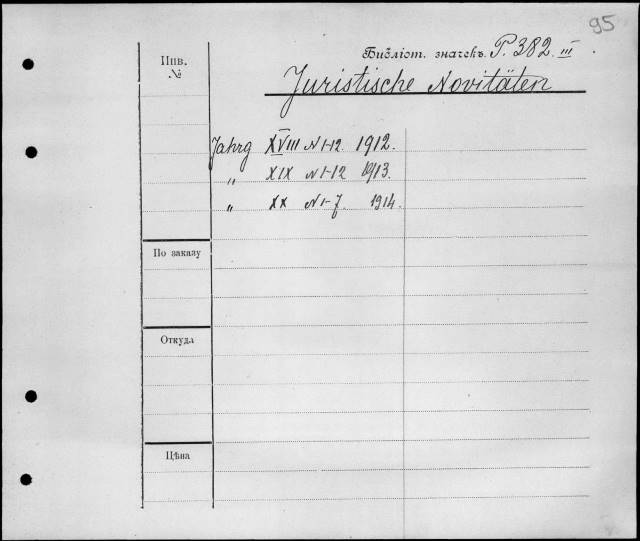 95
Библіот. значекъ P. 382 III.
Инв. №
Juristische Novitäten
Jahrg XVIII N 1-12. 1912.
„ XIX N 1-12 1913.
„ XX N 1-7. 1914.
По заказу
Откуда
Цѣна